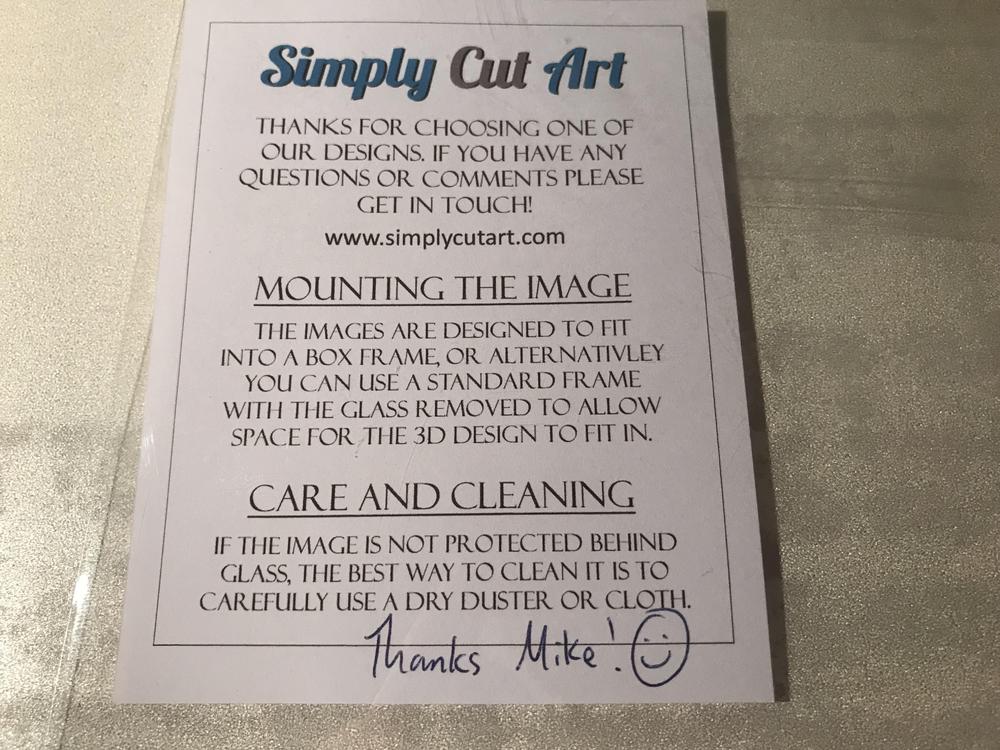 Simply Cut Art
THANKS FOR CHOOSING ONE OF
OUR DESIGNS. IF YOU HAVE ANY
QUESTIONS OR COMMENTS PLEASE
GET IN TOUCH!
www.simplycutart.com
MOUNTING THE IMAGE
THE IMAGES ARE DESIGNED TO FIT
INTO A BOX FRAME, OR ALTERNATIVLEY
YOU CAN USE A STANDARD FRAME
WITH THE GLASS REMOVED TO ALLOW
SPACE FOR THE 3D DESIGN TO FIT IN.
CARE AND CLEANING
IF THE IMAGE IS NOT PROTECTED BEHIND
GLASS, THE BEST WAY TO CLEAN IT IS TO
CAREFULLY USE A DRY DUSTER OR CLOTH.
Thanks Mike!